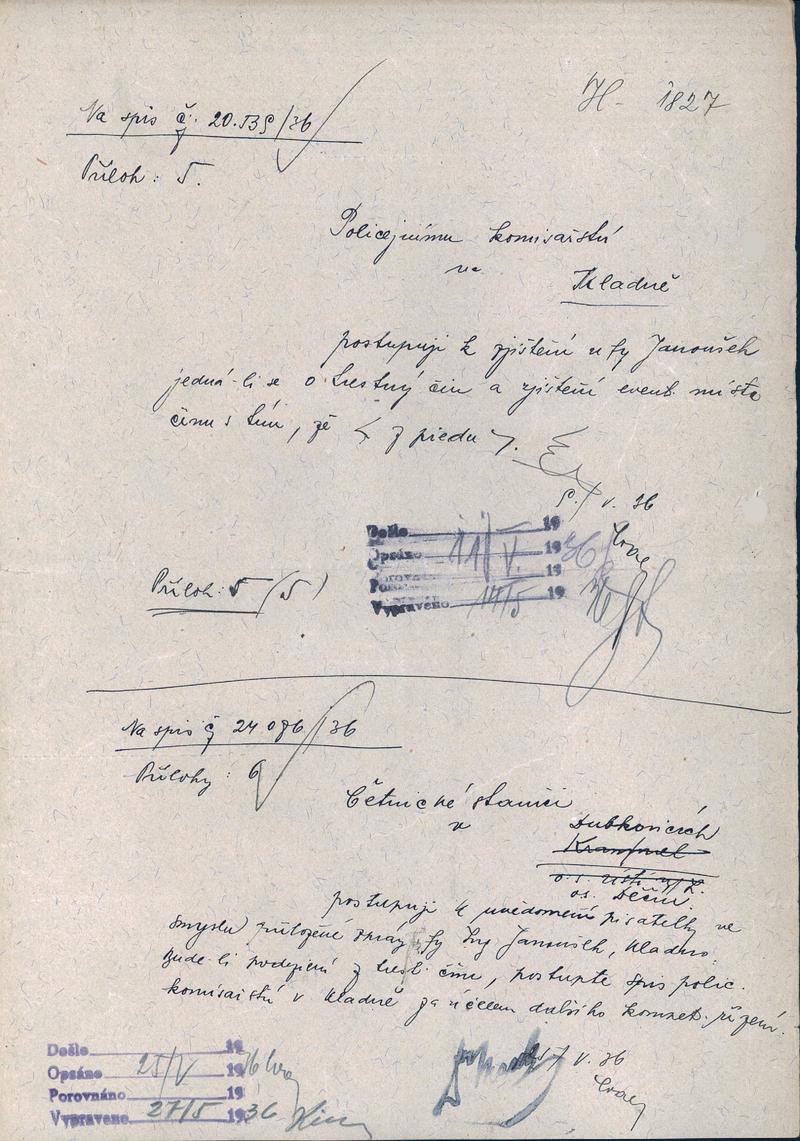 H- 1827
Na spis č. 20.539/36
Příloh: 5.
Policejnímu komisařství
na
Kladně
postupuji k zjištění u fy Janoušek
jedná-li se o trestný čin a zjištění event. místa
činu s tím, že < z předu >.
9./V. 36
Došlo 19
Opsáno 11/V. 1936
Porovnáno 19
Vypraveno 14/5 19
Příloh: 5 (5)
Na spis č 24086/36
Přílohy: 6
Četnické stanici
v Dubkovicích
o. s. Ústí n/L.
os. Děčín.
postupuji k uvědomění pisatelky ve
smyslu přiložené zprávy fy Ing Janoušek, Kladno.
Bude-li podezření z trest. činu, postupte spis polic.
komisařství v Kladně za účelem dalšího kompet. řízení.
17 V. 36
Došlo 19
Opsáno 25/V 1936
Porovnáno 19
Vypraveno 27/5 1936